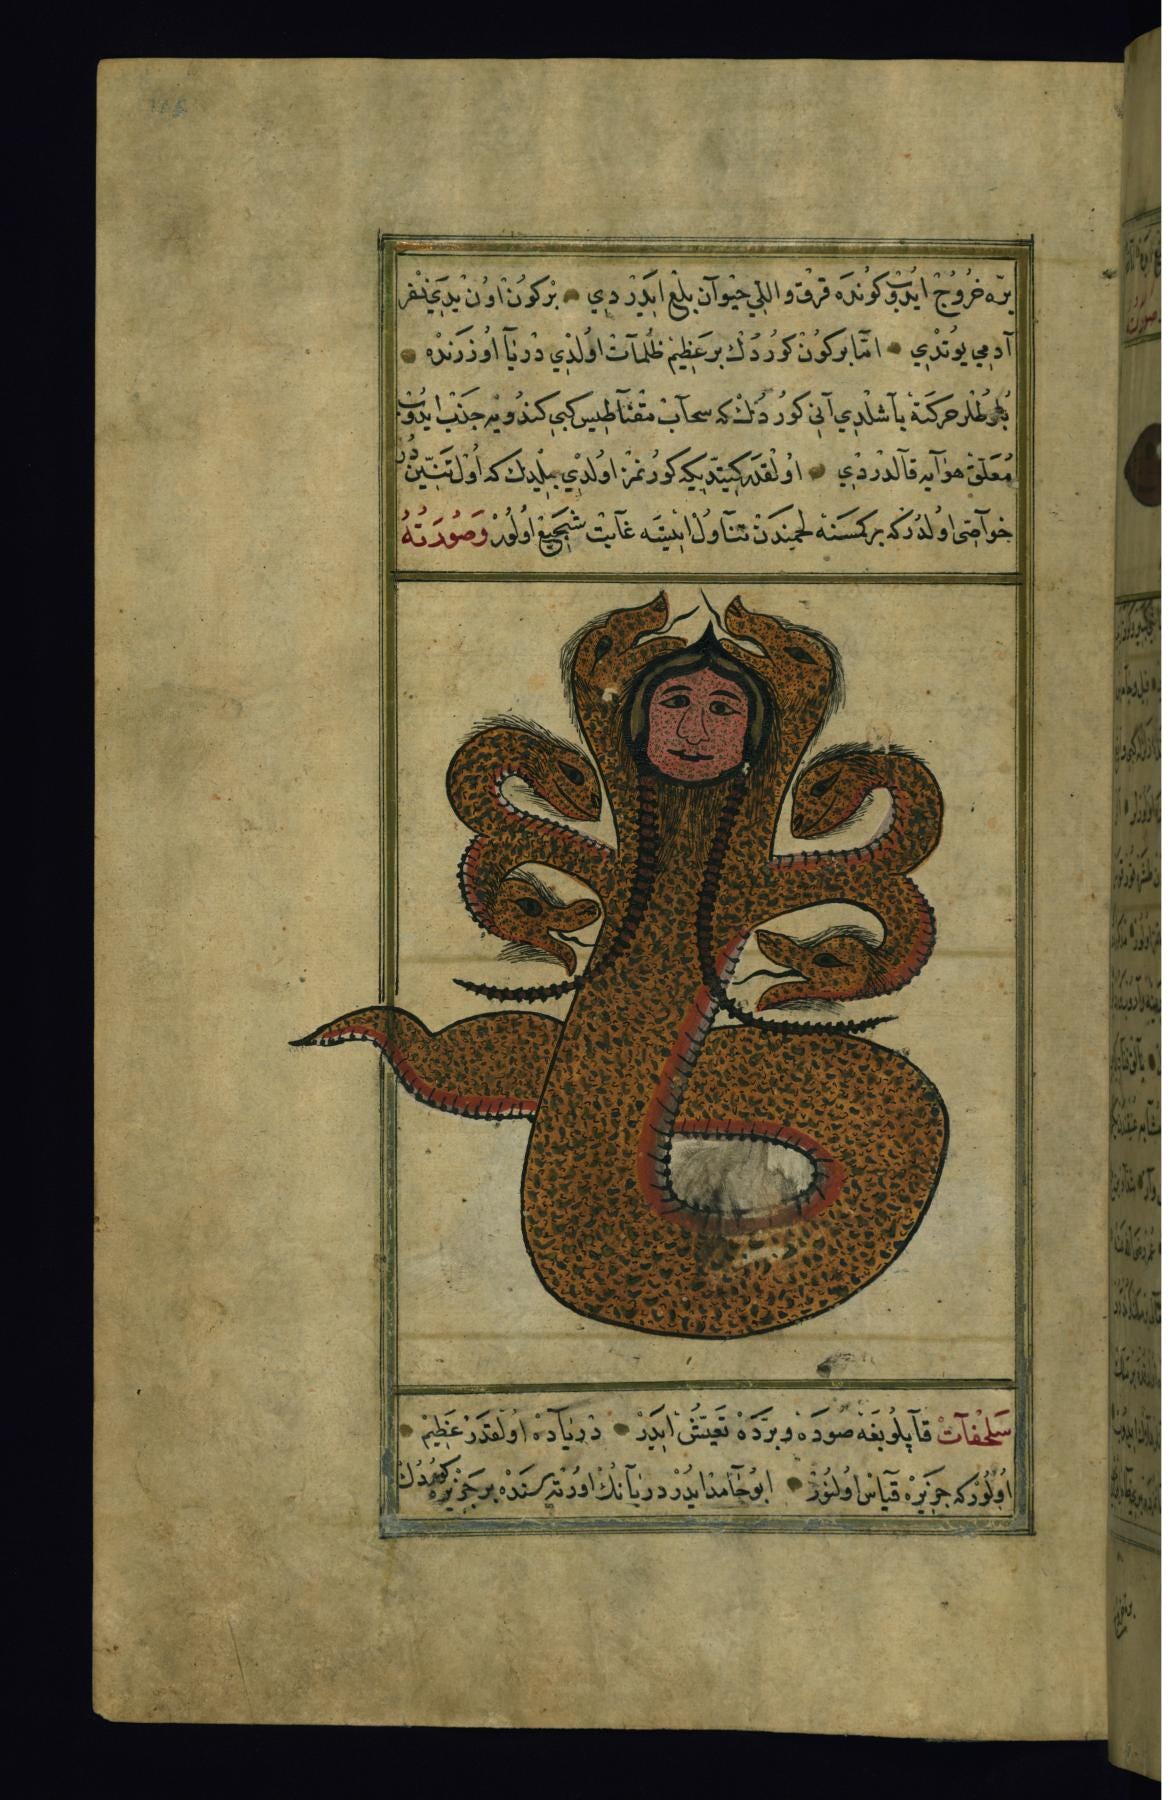 برّه خروج ایدوب كونده قرق و اللي حیوان بلع ایدر دي بر كون اون یدي نفر
آدمي یوتدي امّا بر كون كوردك بر عظیم ظلمات اولدي دریا اوزرنده
بلوطلر حركته باشلدي آني كوردك كه سحاب مقناطیس كبي كندویه جذب ایدوب
معلّق هوایه قالدردي اولقدر كیتدیكه كورنمز اولدي بیلدك كه اول تنّیندر
خواصّی اولدر كه بر كمسنه لحمیندن تناول ایتسه غایت شجیع اولور وصورته
سلحفات قاپلوبغه صوده و برّده تعیّش ایدر دریاده اولقدر عظیم
اولور كه جزیره قیاس اولنور ابو حامد ایدر دریانك اورته سنده بر جزیره كوردك